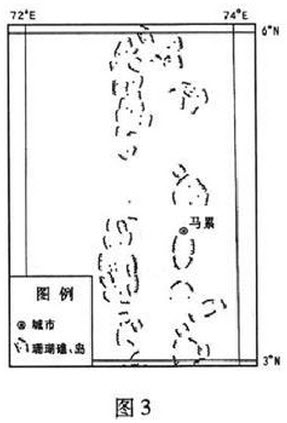 72°E
74°E
6°N
马累
图例
城市
珊瑚礁、岛
3°N
图3